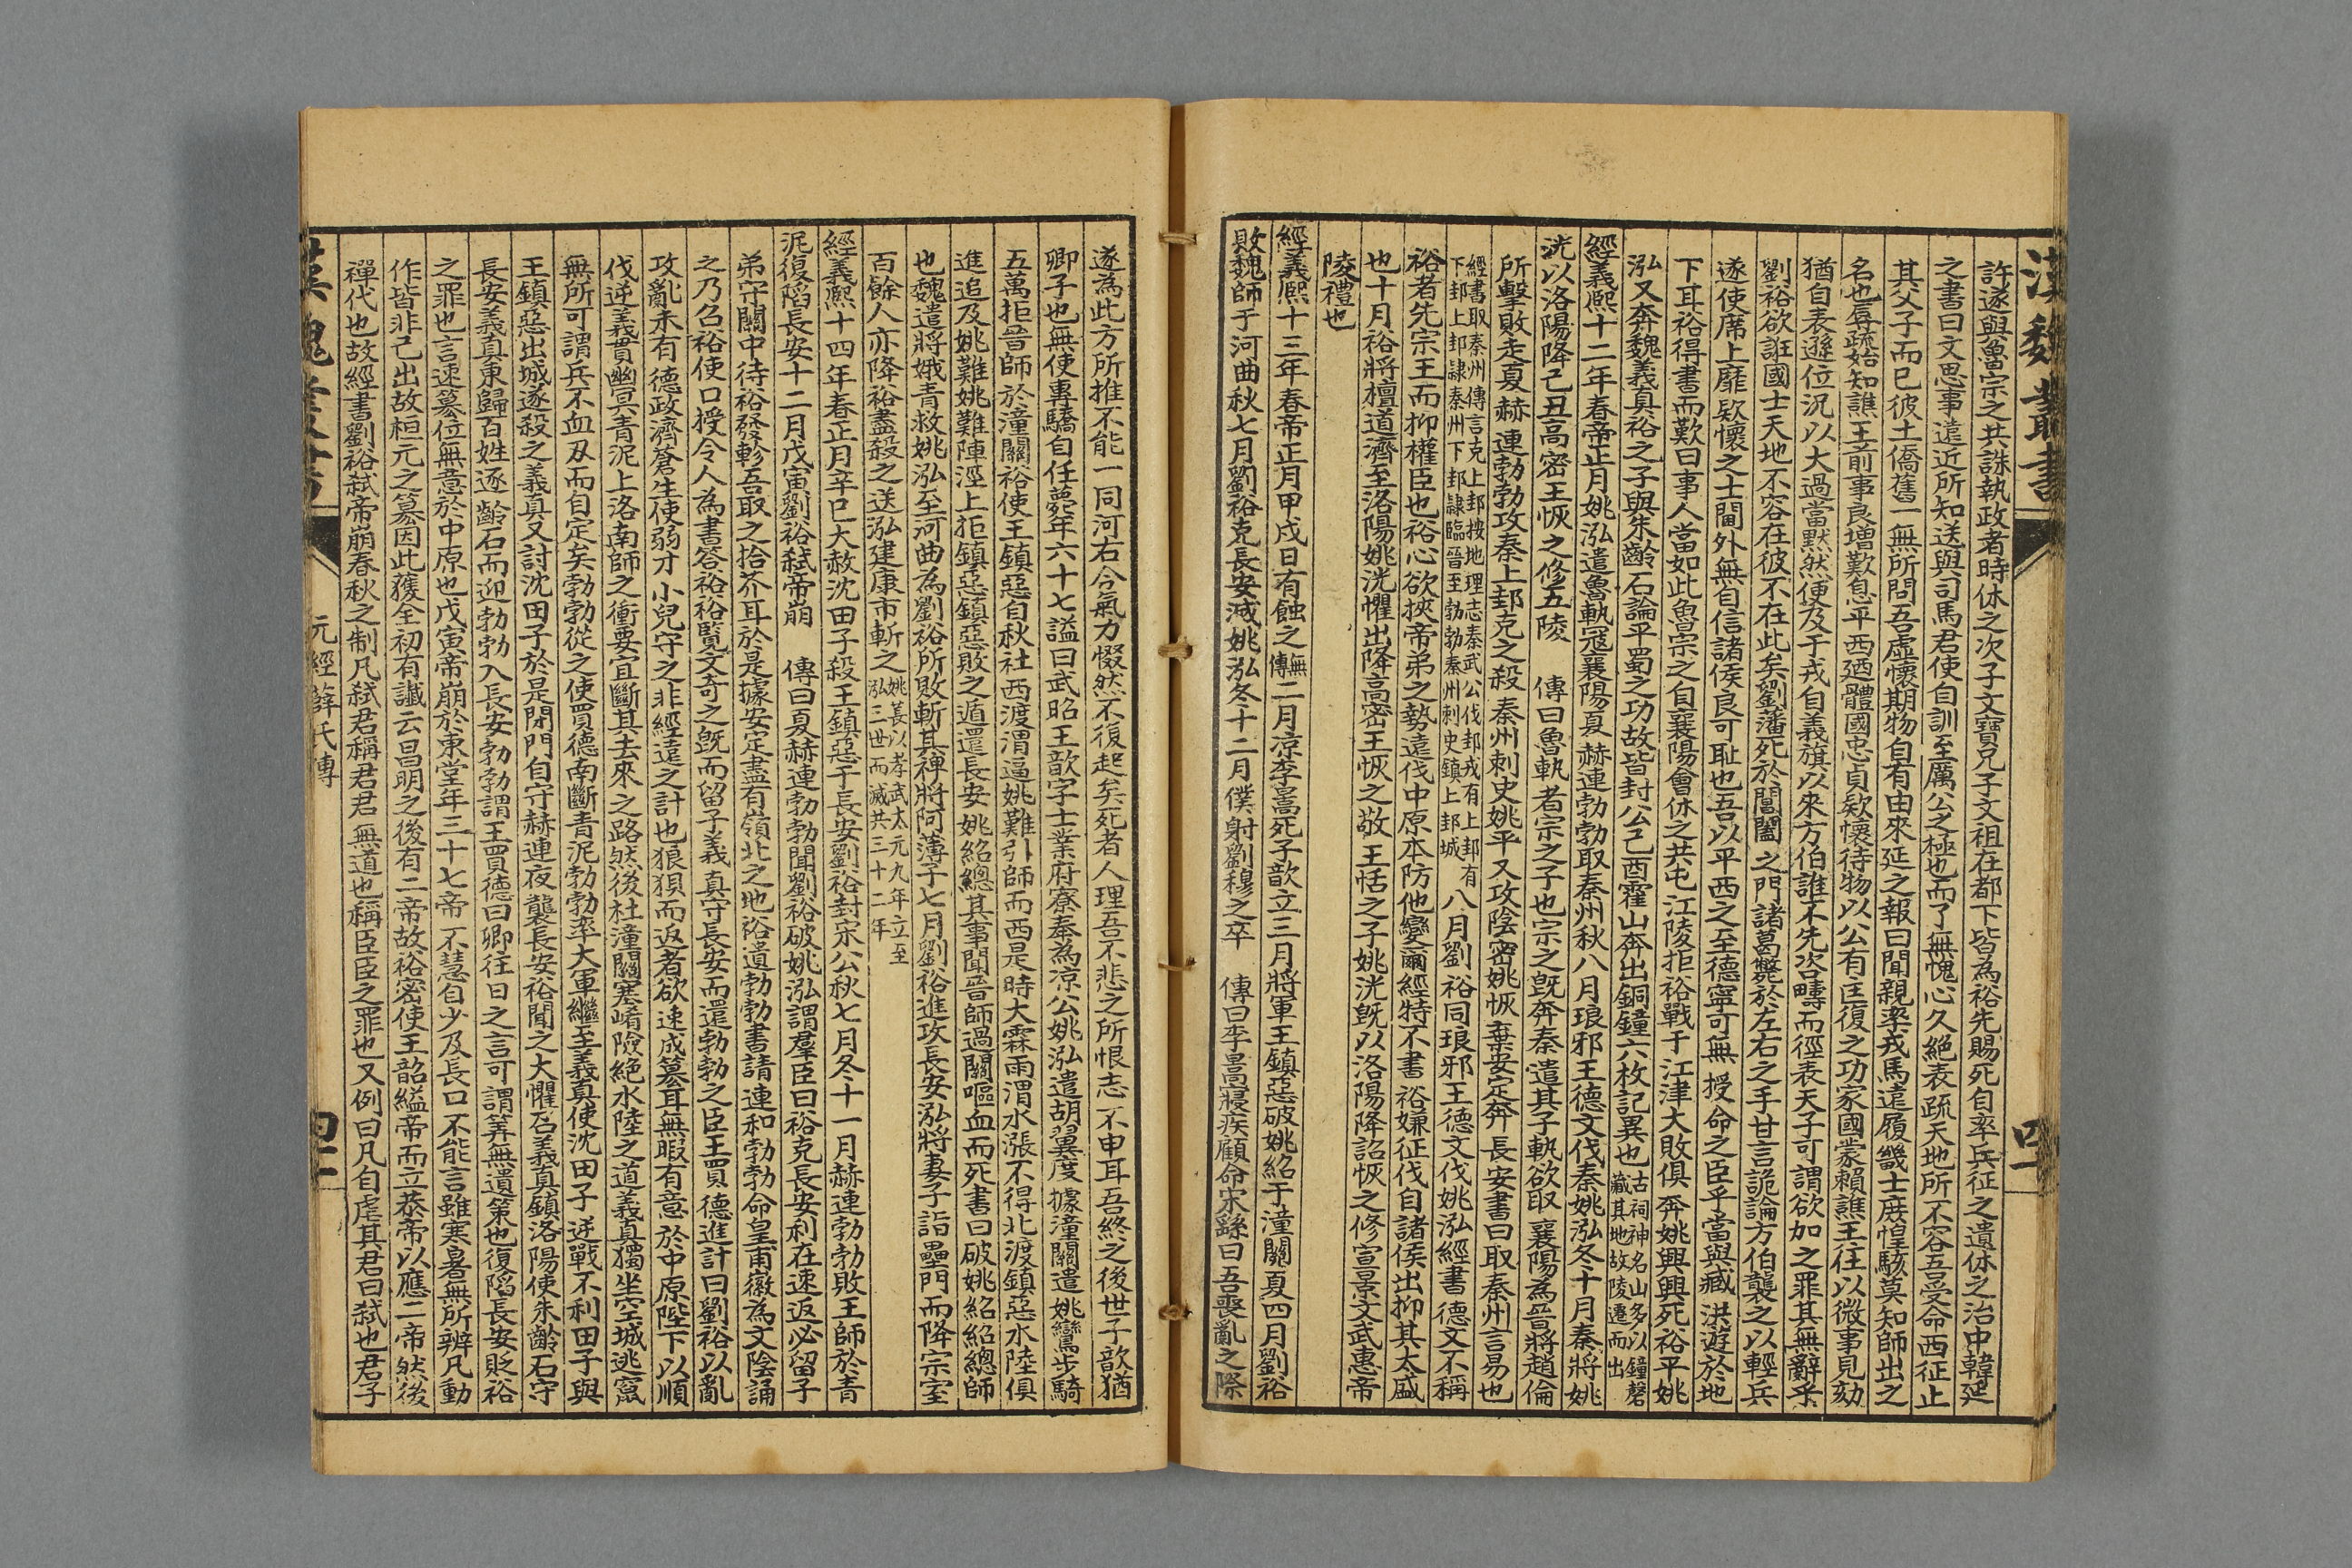 漢魏叢書
四十
許遂與魯宗之共誅執政者時休之次子文寶兄子文祖在都下皆為裕先賜死自率兵征之遺休之治中韓延
之書曰文思事遠近所知送與司馬君使自訓至厲公之極也而了無愧心久絕表疏天地所不容吾受命西征止
其父子而已彼土僑舊一無所問吾虛懷期物自有由來延之報曰聞親率戎馬遠履畿士庶惶駭莫知師出之
名也辱疏始知譙王前事良增歎息平西廼體國忠貞欵懷待物以公有匡復之功家國蒙賴譙王往以微事見劾
猶自表遜位況以大過當默然便及于戎自義旗以來方伯誰不先咨疇而徑表天子可謂欲加之罪其無辭乎
劉裕欲誑國士天地不容在彼不在此矣劉藩死於閶闔之門諸葛斃於左右之手甘言詭論方伯襲之以輕兵
遂使席上靡欵懷之士閫外無自信諸侯良可耻也吾以平西之至德寧可無授命之臣乎當與臧洪遊於地
下耳裕得書而歎曰事人當如此魯宗之自襄陽會休之共屯江陵拒裕戰于江津大敗俱奔姚興興死裕平姚
泓又奔魏義真裕之子與朱齡石論平蜀之功故皆封公己酉霍山奔出銅鐘六枚記異也古祠神名山多以鐘磬藏其地故陵遷而出
經義熙十二年春帝正月姚泓遣魯軌寇襄陽夏赫連勃勃取秦州秋八月琅邪王德文伐秦姚泓冬十月秦將姚
洸以洛陽降己丑高密王恢之修五陵 傳曰魯軌者宗之子也宗之既奔秦遣其子軌欲取襄陽為晉將趙倫
所擊敗走夏赫連勃勃攻秦上邽克之殺秦州刺史姚平又攻陰密姚恢棄安定奔長安書曰取秦州言易也
經書取秦州傳言克上邽按地理志秦武公伐邽戎有上邽有下邽上邽隸秦州下邽隸臨晉至勃勃秦州刺史鎮上邽城八月劉裕同琅邪王德文伐姚泓經書德文不稱
裕者先宗王而抑權臣也裕心欲挾帝弟之勢遠伐中原本防他變爾經特不書裕嫌征伐自諸侯出抑其太盛
也十月裕將檀道濟至洛陽姚洸懼出降高密王恢之敬王恬之子姚洸既以洛陽降詔恢之修宣景文武惠帝
陵禮也
經義熙十三年春帝正月甲戌日有蝕之無傳二月凉李暠死子歆立三月將軍王鎮惡破姚紹于潼關夏四月劉裕
敗魏師于河曲秋七月劉裕克長安滅姚泓冬十二月僕射劉穆之卒 傳曰李暠寢疾顧命宋繇曰吾喪亂之際
遂為此方所推不能一同河右今氣力惙然不復起矣死者人理吾不悲之所恨志不申耳吾終之後世子歆猶
卿子也無使專驕自任薨年六十七謚曰武昭王歆字士業府寮奉為凉公姚泓遣胡翼度據潼關遣姚鸞步騎
五萬拒晉師於潼關裕使王鎮惡自秋社西渡渭逼姚難引師而西是時大霖雨渭水漲不得北渡鎮惡水陸俱
進追及姚難姚難陣涇上拒鎮惡鎮惡敗之遁還長安姚紹總其事聞晉師過關嘔血而死書曰破姚紹紹總師
也魏遣將娥青救姚泓至河曲為劉裕所敗斬其裨將阿薄干七月劉裕進攻長安泓將妻子詣壘門而降宗室
百餘人亦降裕盡殺之送泓建康市斬之姚萇以孝武太元九年立至泓三世而滅共三十二年
經義熙十四年春正月辛巳大赦沈田子殺王鎮惡于長安劉裕封宋公秋七月冬十一月赫連勃勃敗王師於青
泥復陷長安十二月戊寅劉裕弒帝崩 傳曰夏赫連勃勃聞劉裕破姚泓謂羣臣曰裕克長安利在速返必留子
弟守關中待裕發軫吾取之拾芥耳於是據安定盡有嶺北之地裕遺勃勃書請連和勃勃命皇甫徽為文陰誦
之乃召裕使口授令人為書答裕裕覧文奇之既而留子義真守長安而還勃勃之臣王買德進計曰劉裕以亂
攻亂未有德政濟蒼生使弱才小兒守之非經遠之計也狼狽而返者欲速成篡耳無暇有意於中原陛下以順
伐逆義貫幽冥青泥上洛南師之衝要宜斷其去來之路然後杜潼關塞崤險絕水陸之道義真獨坐空城逃竄
無所可謂兵不血刃而自定矣勃勃從之使買德南斷青泥勃勃率大軍繼至義真使沈田子逆戰不利田子與
王鎮惡出城遂殺之義真又討沈田子於是閉門自守赫連夜襲長安裕聞之大懼召義真鎮洛陽使朱齡石守
長安義真東歸百姓逐齡石而迎勃勃入長安勃勃謂王買德曰卿往日之言可謂筭無遺策也復陷長安貶裕
之罪也言速篡位無意於中原也戊寅帝崩於東堂年三十七帝不慧自少及長口不能言雖寒暑無所辨凡動
作皆非己出故桓元之篡因此獲全初有讖云昌明之後有二帝故裕密使王韶縊帝而立恭帝以應二帝然後
禪代也故經書劉裕弒帝崩春秋之制凡弒君稱君君無道也稱臣臣之罪也又例曰凡自虐其君曰弒也君子
漢魏叢書
元經薛氏傳